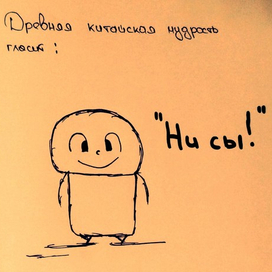 Древняя китайская мудрость
гласит:
"Ни сы!"